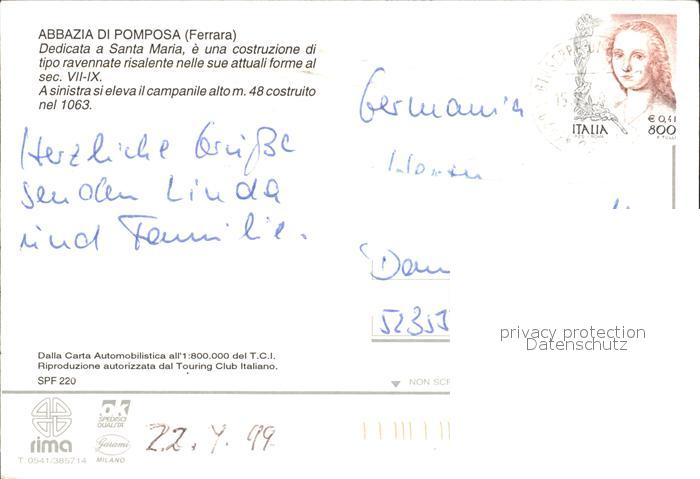 ABBAZIA DI POMPOSA (Ferrara)
Dedicata a Santa Maria, è una costruzione di
tipo ravennate risalente nelle sue attuali forme al
sec. VII-IX.
A sinistra si eleva il campanile alto m. 48 costruito
nel 1063.
Herzliche Grüße
senden Linda
und Familie.
Germania
ITALIA
€ 0,41
800
52355
privacy protection
Datenschutz
Dalla Carta Automobilistica all'1:800.000 del T.C.I.
Riproduzione autorizzata dal Touring Club Italiano.
SPF 220
NON SCR
rima
T. 0541/385714
OK
SPEDISCI
QUALITÀ
Garami
MILANO
22. 4. 99